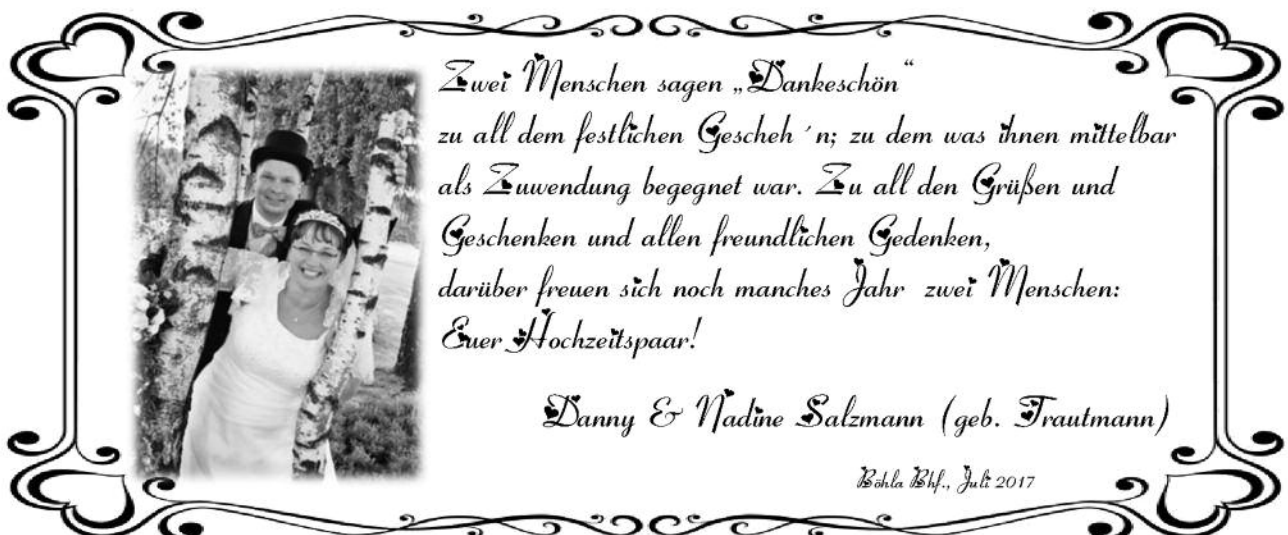 Zwei Menschen sagen „Dankeschön“
zu all dem festlichen Gescheh ´n; zu dem was ihnen mittelbar
als Zuwendung begegnet war. Zu all den Grüßen und
Geschenken und allen freundlichen Gedenken,
darüber freuen sich noch manches Jahr zwei Menschen:
Euer Hochzeitspaar!
Danny & Nadine Salzmann (geb. Trautmann)
Böhla Bhf., Juli 2017